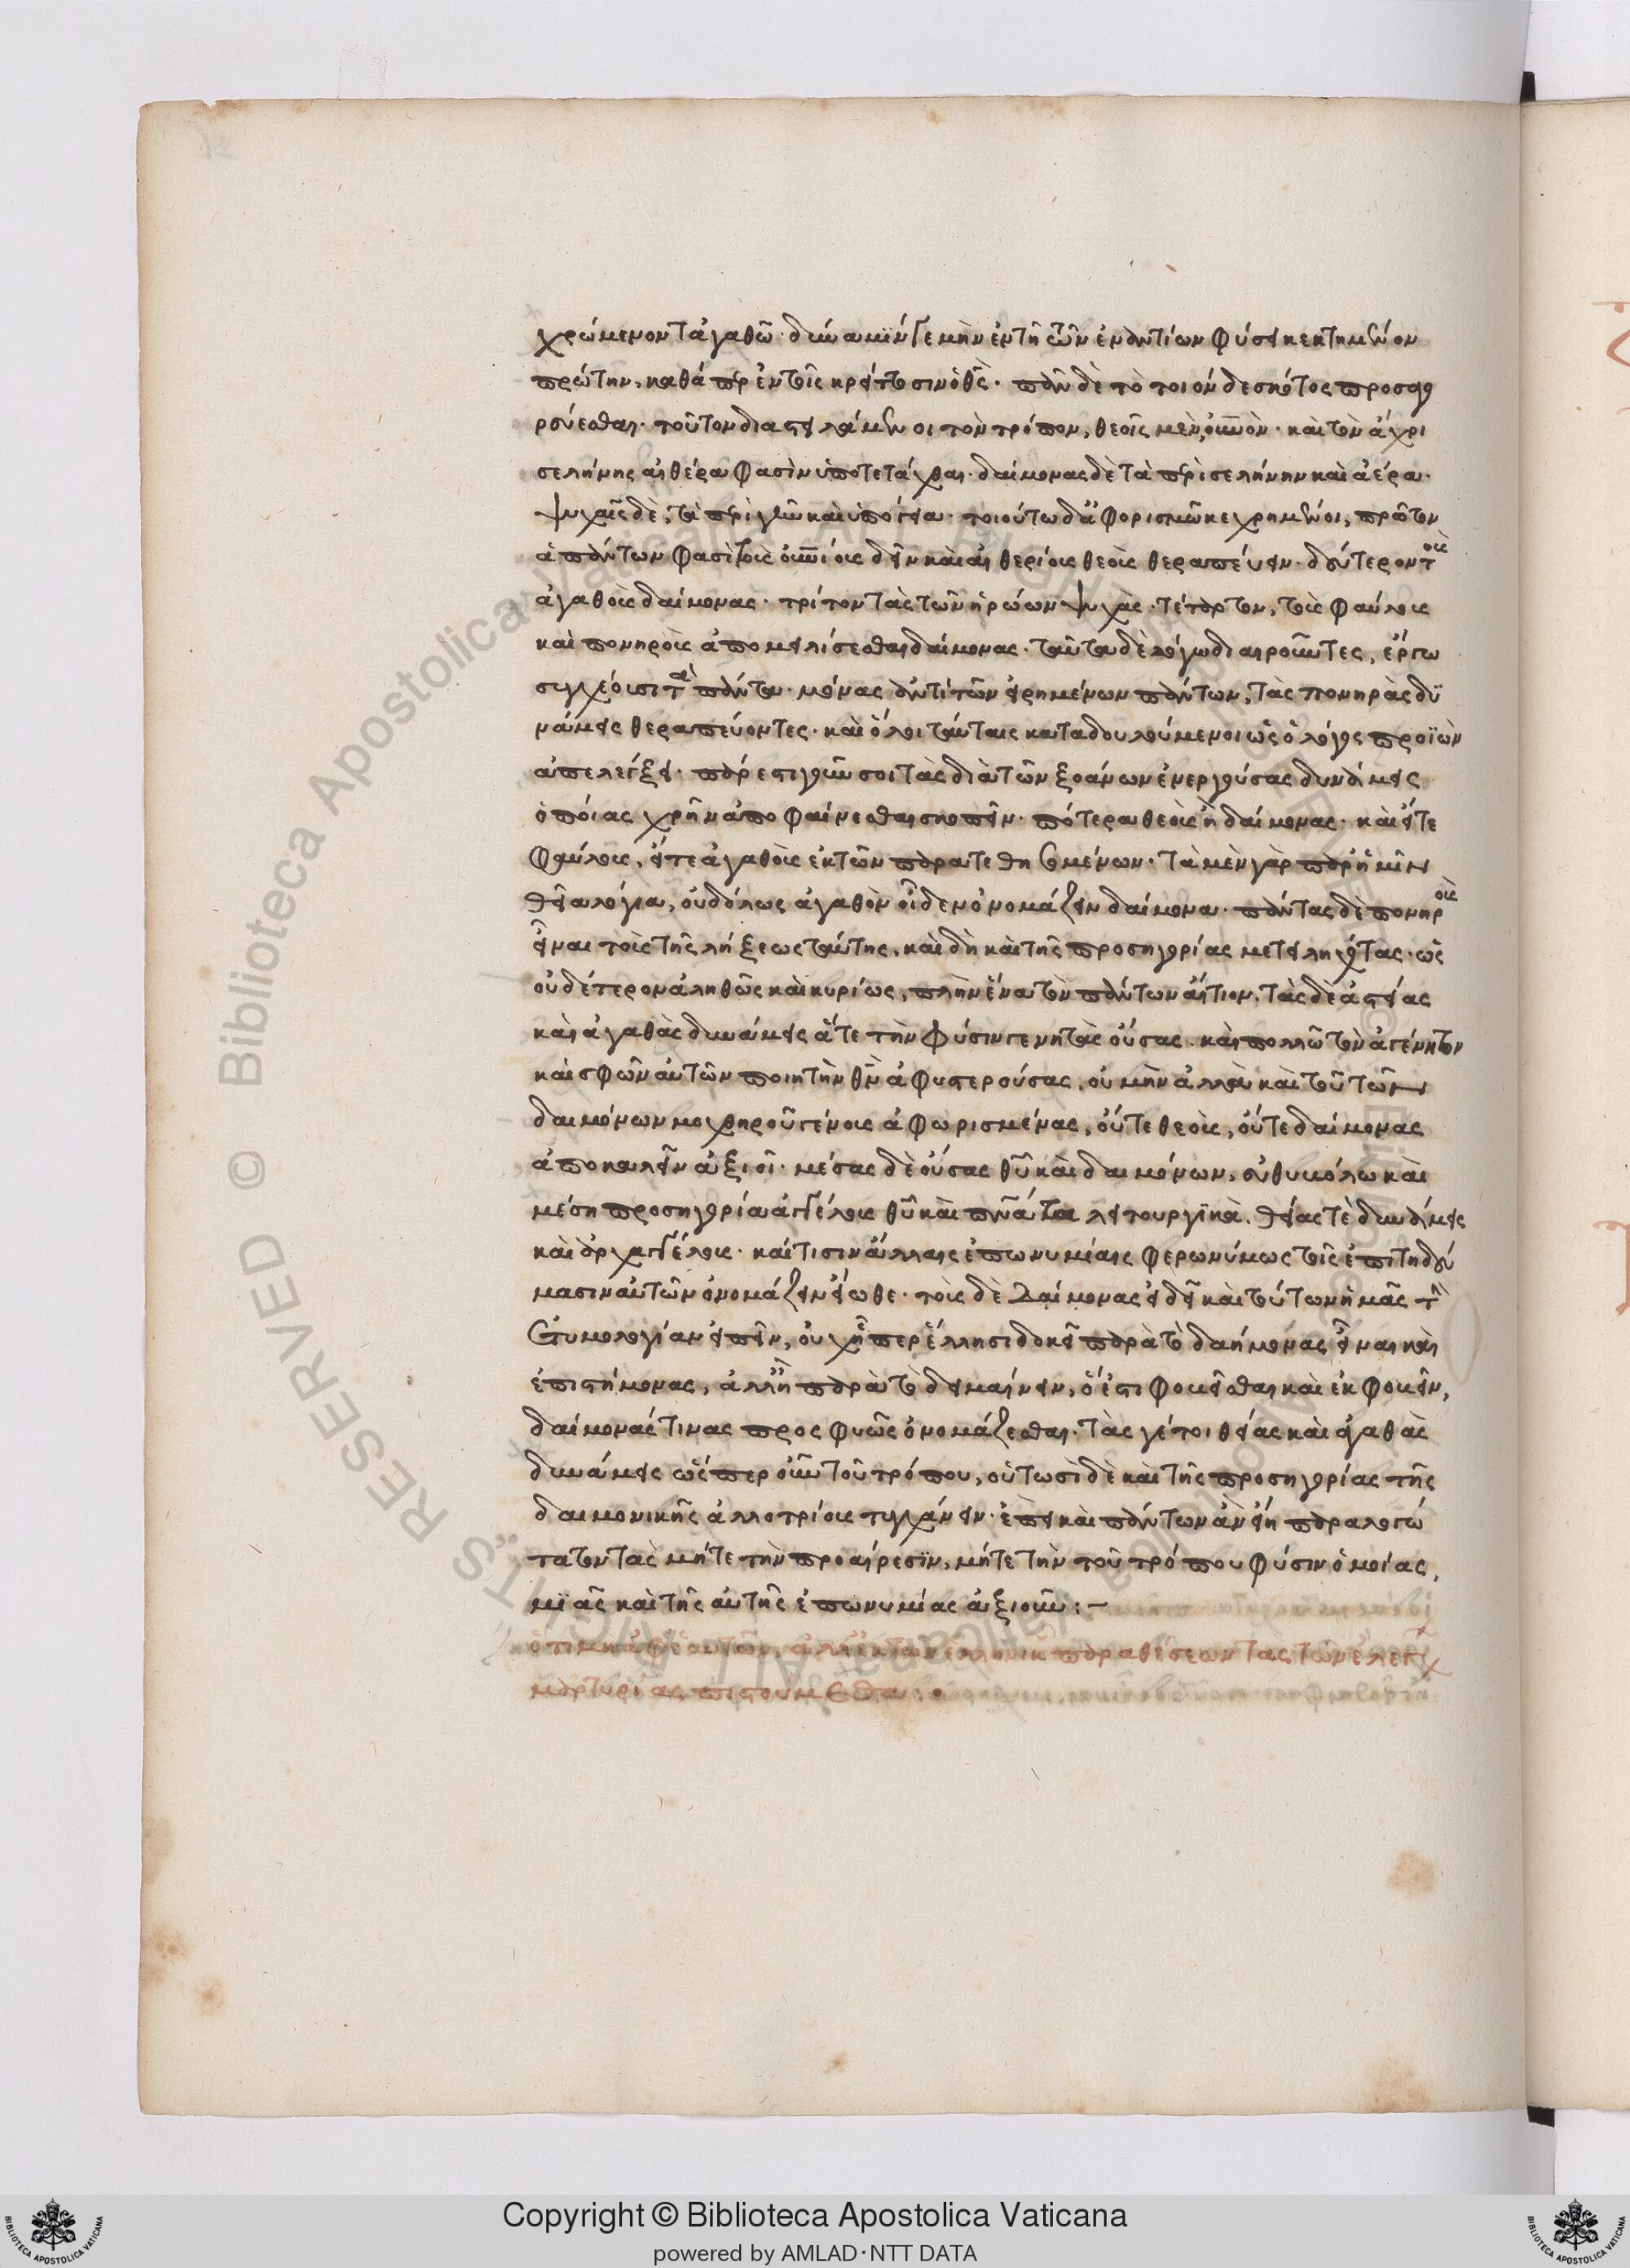 χρώμενον τἀγαθῶ· δύναμίν γε μὴν ἐν τῆ τῶν ἐναντίων φύσει κεκτημένον
πρώτην, καθάπερ ἐν τοῖς κρείττοσιν ὁ θεός· πᾶν δὲ τὸ τοιόνδε σκότος προσαγο
ρεύεσθαι· τοῦτον διαστειλάμενοι τὸν τρόπον, θεοῖς μὲν, οὐρανὸν· καὶ τὸν ἄχρι
σελήνης αἰθέρα φασὶν ὑποτετάχθαι· δαίμονας δὲ τὰ περὶ σελήνην καὶ ἀέρα·
ψυχαῖς δὲ, τὰ περὶ γῆν καὶ ὑπόγεια· τοιούτω δ' ἀφορισμῶ κεχρημένοι, πρῶτον
ἁπάντων φασὶ τοὺς οὐρανίους δεῖν καὶ αἰθερίους θεοὺς θεραπεύειν· δεύτερον τοὺς
ἀγαθοὺς δαίμονας· τρίτον τὰς τῶν ἡρώων ψυχὰς· τέταρτον, τοὺς φαύλους
καὶ πονηροὺς ἀπομειλίσεσθαι δαίμονας· ταῦτα δὲ λόγω διαιροῦντες, ἔργω
συγχέουσι τὰ πάντα· μόνας ἀντὶ τῶν εἰρημένων πάντων, τὰς πονηρὰς δυ
νάμεις θεραπεύοντες· καὶ ὅλοι ταύταις καταδουλούμενοι ὡς ὁ λόγος προϊὼν
ἀπελέγξει· πάρεστι γοῦν σοι τὰς διὰ τῶν ξοάνων ἐνεργούσας δυνάμεις
ὁποίας χρὴν ἀποφαίνεσθαι σκοπεῖν· πότερα θεοὺς ἢ δαίμονας· καὶ εἴτε
φαύλους, εἴτε ἀγαθοὺς ἐκ τῶν παρατεθησομένων· τὰ μὲν γὰρ παρ' ἡμῖν
θεῖα λόγια, οὐδ' ὅλως ἀγαθὸν οἶδεν ὀνομάζειν δαίμονα· πάντας δὲ πονηροὺς
εἶναι τοὺς τῆς λήξεως ταύτης, καὶ δὴ καὶ τῆς προσηγορίας μετειληχότας· ὡς
οὐδ' ἕτερον ἀληθῶς καὶ κυρίως, πλὴν ἕνα τὸν πάντων αἴτιον, τὰς δὲ ἀστείας
καὶ ἀγαθὰς δυνάμεις ἅτε τὴν φύσιν γενητὰς οὔσας· καὶ πολλῶ τὸν ἀγένητον
καὶ σφῶν αὐτῶν ποιητὴν θεὸν ἀφυστερούσας, οὐ μὴν ἀλλὰ καὶ τοῦ τῶν
δαιμόνων μοχθηροῦ γένους ἀφωρισμένας, οὔτε θεοὺς, οὔτε δαίμονας
ἀποκαλεῖν ἀξιοῖ· μέσας δὲ οὔσας θεοῦ καὶ δαιμόνων, εὐθυβόλω καὶ
μέση προσηγορία ἀγγέλους θεοῦ καὶ πνεύματα λειτουργικὰ. θείας τὲ δυνάμεις
καὶ ἀρχαγγέλους· καί τισιν ἄλλαις ἐπωνυμίαις φερωνύμως τοῖς ἐπιτηδεύ
μασιν αὐτῶν ὀνομάζειν εἴωθε· τοὺς δὲ δαίμονας εἰ δεῖ καὶ τούτων ἡμᾶς τὴν
ἐτυμολογίαν εἰπεῖν, οὐχ ἧπερ ἕλλησι δοκεῖ παρὰ τὸ δαήμονας εἶναι καὶ
ἐπιστήμονας, ἀλλ' ἢ παρὰ τὸ δειμαίνειν, ὅ ἐστι φοβεῖσθαι καὶ ἐκφοβεῖν,
δαίμονάς τινας προσφυῶς ὀνομάζεσθαι· τὰς γέ τοι θείας καὶ ἀγαθὰς
δυνάμεις ὥσπερ οὖν τοῦ τρόπου, οὑτωσὶ δὲ καὶ τῆς προσηγορίας τῆς
δαιμονικῆς ἀλλοτρίους τυγχάνειν· ἐπεὶ καὶ πάντων ἂν εἴη παραλογώ
τατον τὰς μήτε τὴν προαίρεσιν, μήτε τὴν τοῦ τρόπου φύσιν ὁμοίας,
μιᾶς καὶ τῆς αὐτῆς ἐπωνυμίας ἀξιοῦν:–
ὅτι μὴ ἀφ' ἑαυτῶν, ἀλλ' ἐκ τῶν ἑλληνικῶν παραθέσεων τὰς τῶν ἐλέγχων
μαρτυρίας πιστούμεθα: